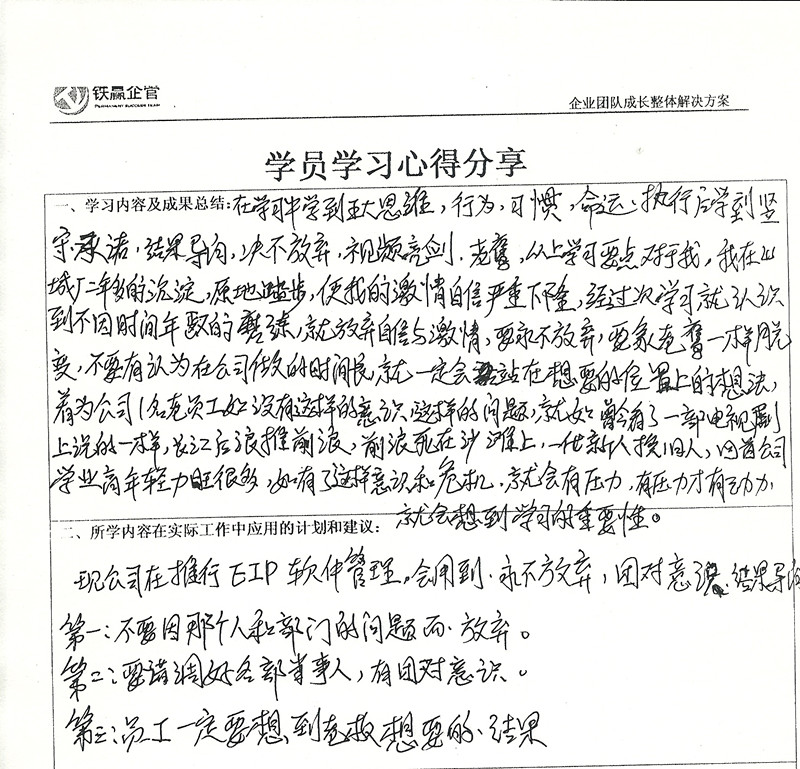 铁赢企管
PERMANENT SUCCESS TEAM
企业团队成长整体解决方案
学员学习心得分享
一、学习内容及成果总结:在学习中学到五大思维,行为,习惯,命运、执行后学到坚
守承诺,结果导向,决不放弃,视频亮剑、老鹰,从上学习要点对于我,我在山
城厂二年多的沉淀,原地踏步,使我的激情自信严重下降,经过次学习就认识
到不因时间年数的磨练,就放弃自信与激情,要永不放弃,要象老鹰一样脱
变,不要有认为在公司做久的时间长,就一定会站在想要的位置上的想法,
着为公司1名老员工如没有这样的意识,这样的问题,就如曾看了一部电视剧
上说的一样,长江后浪推前浪,前浪死在沙滩上,一代新人换旧人,因公司
学业高年轻力旺很多,如有了这样意识和危机,就会有压力,有压力才有动力
就会想到学习的重要性。
二、所学内容在实际工作中应用的计划和建议:
现公司在推行EIP软件管理。会用到、永不放弃,团对意识、结果导向
第一:不要因那个人和部门的问题而放弃。
第二:要调好各部事人,有团对意识。
第三:员工一定要想到想要的结果